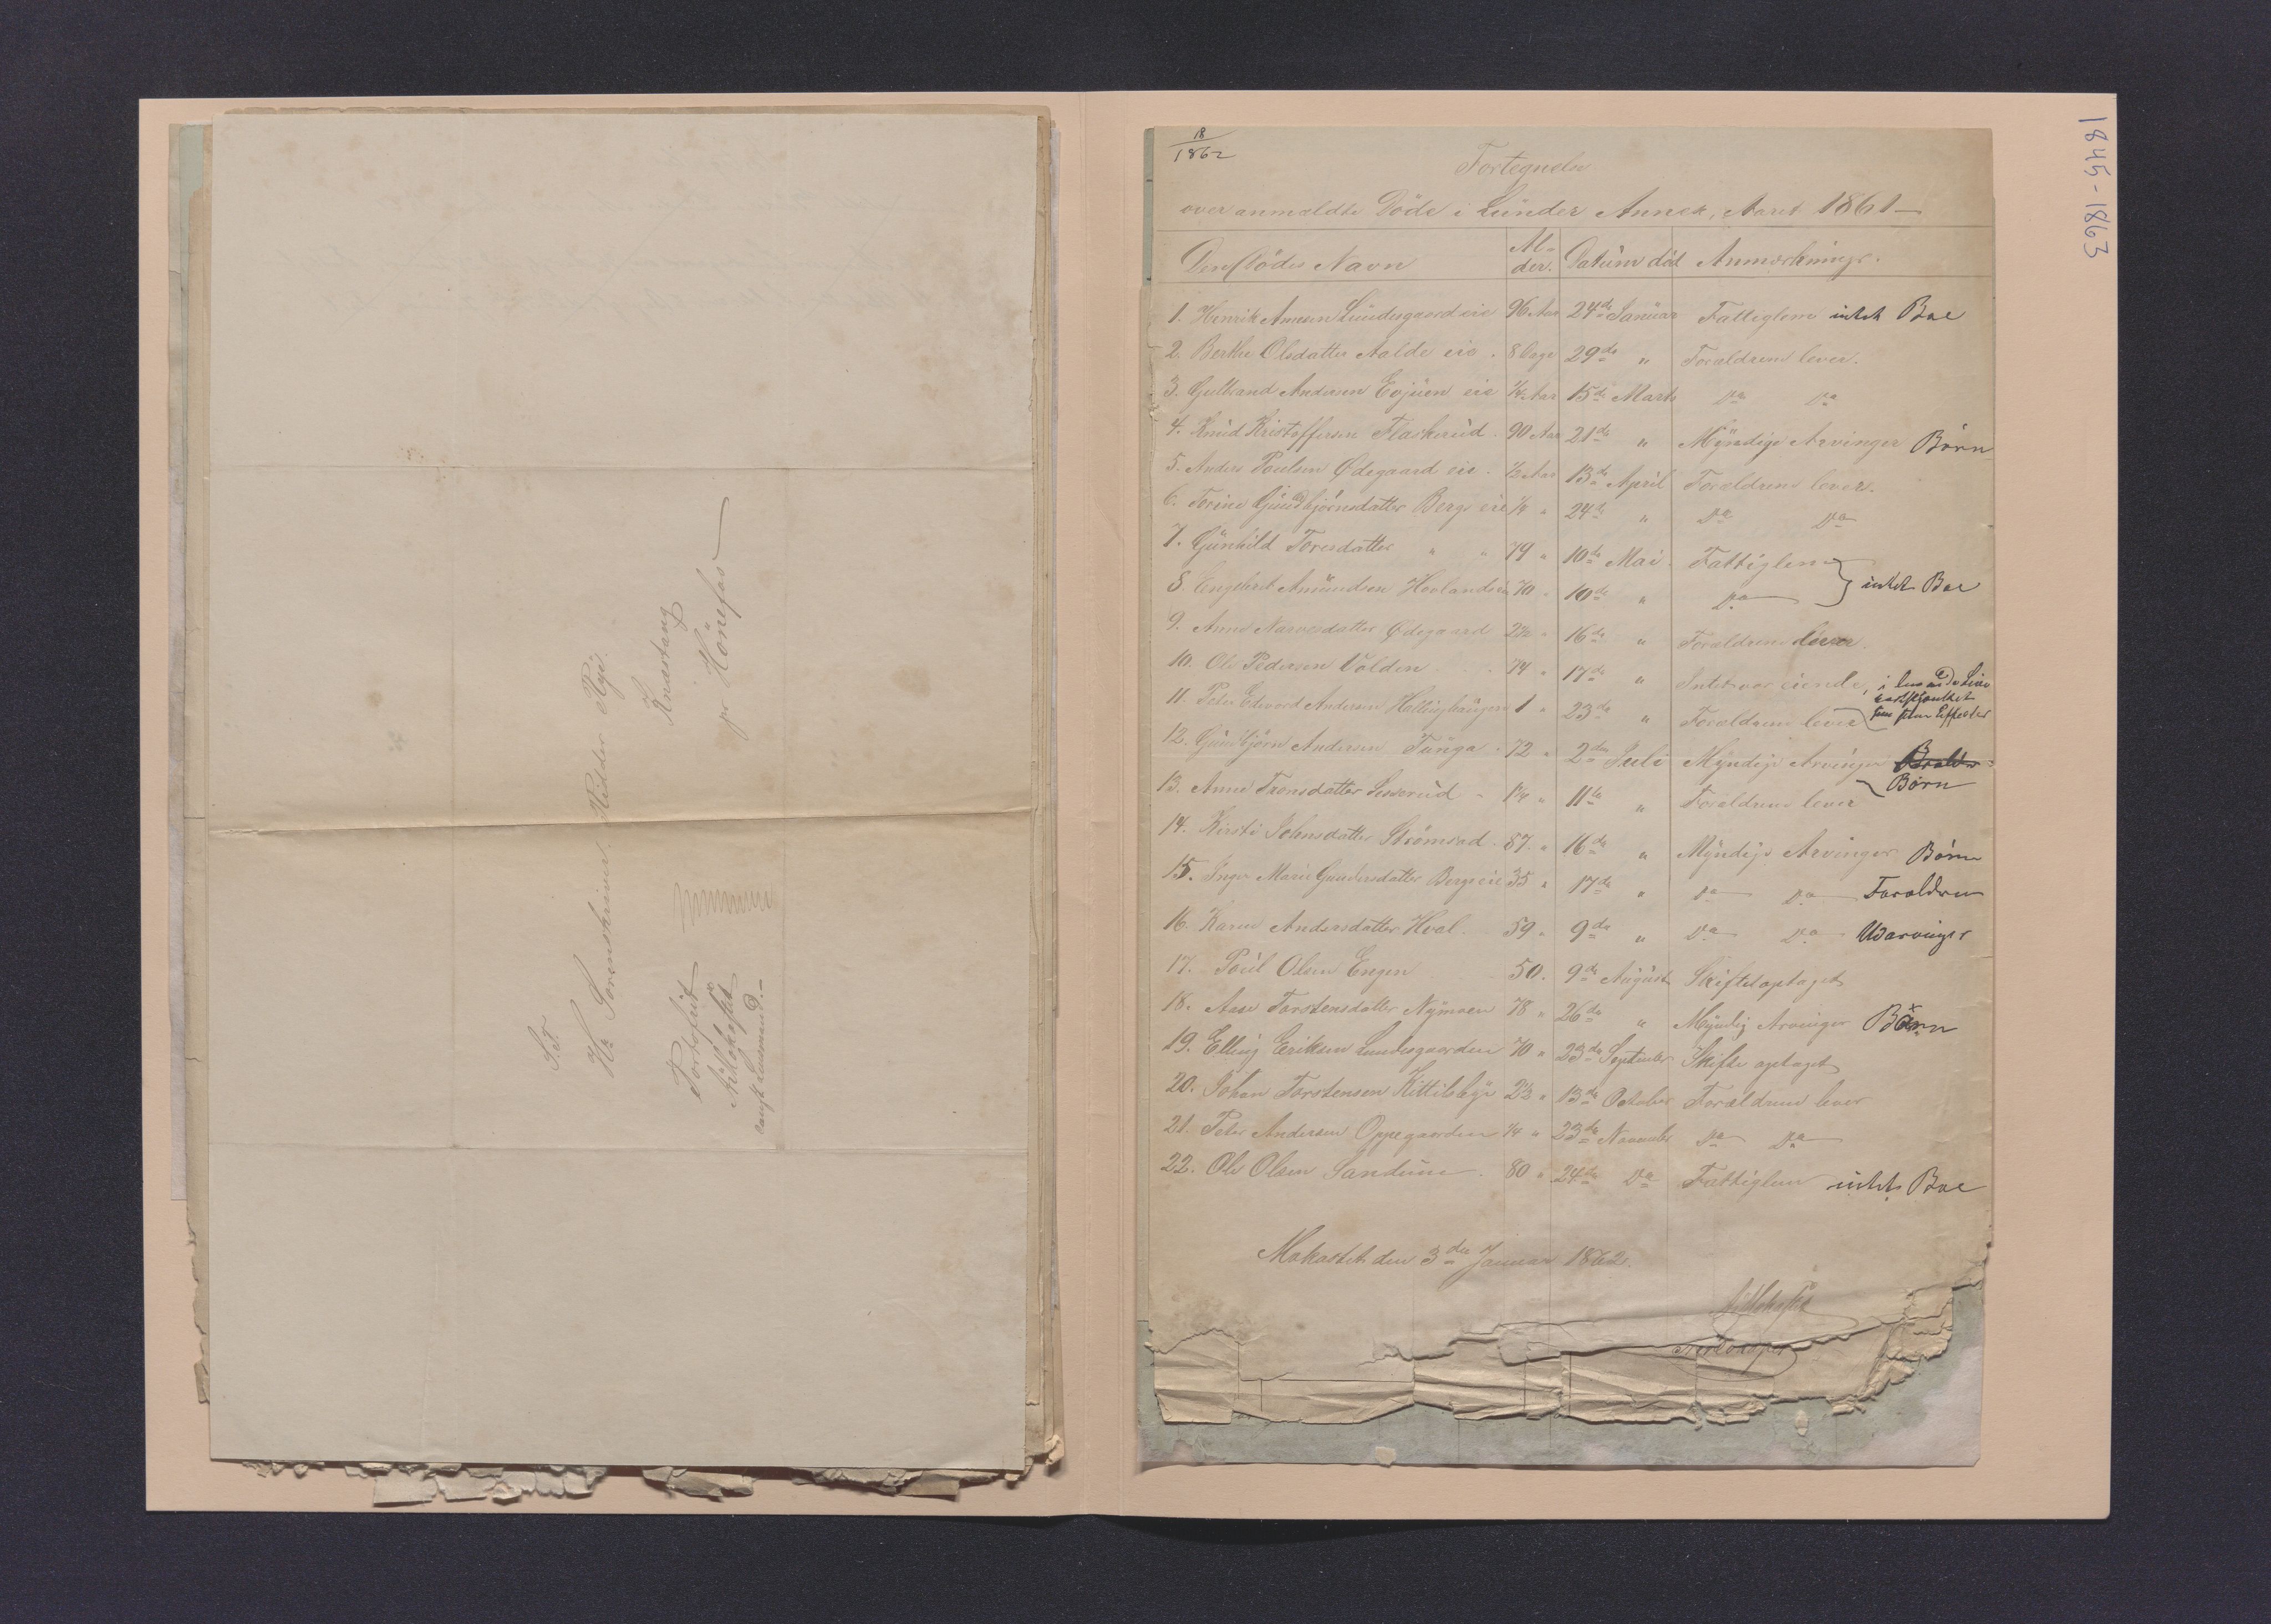 S.T.
Hr Sorenskriver, Ridder Rye.
Knæstang
pr Hönefos
Portofrit
const Lensmand.
1845-1863
18/1862
Fortegnelse
over anmeldte Döde i Lunder Annex, Aaret 1861
Den Dödes Navn | Alder. | Datum död | Anmærkninger.
1. Henrik Arnesen Lundesgaard eie 96 Aar 24de Januar Fattiglem intet Boe
2. Berthe Olsdatter Aalde eie. 8 Dage 29de " Forældrene lever.
3. Gulbrand Andersen Evjuen eie 1/4 Aar 15de Marts Do Do
4. Knud Kristoffersen Flaskerud. 90 Aar 21de " Myndige Arvinger Börn
5. Anders Poulsen Ødegaard eie. 1/2 Aar 13de April Forældrene lever.
6. Torine Gundbjörnsdatter Berg eie 1/4 " 24de " Do Do
7. Gunhild Toresdatter " " 79 " 10de Mai. Fattiglem
8 Engebret Amundsen Hovland eie 70 " 10de " Do } intet Boe
9. Anne Narvesdatter Ødegaard 2 1/2 " 16de " Forældrene lever.
10. Ole Pedersen Volden 74 " 17de " Intet var eiende, i levende Live
bortskjænket sine Effecter
11. Peter Edvard Andersen Hallinghaugen 1 " 23de " Forældrene lever
12. Gundbjörn Andersen Tunga. 72 " 2den Juli Myndige Arvinger Börn
13. Anne Tronsdatter 1 1/4 " 11te " Forældrene lever
14. Kirsti Johnsdatter Strömsod. 87. " 16de " Myndige Arvinger Börn
15. Inger Marie Gundersdatter Berg eie 35 " 17de " Do Do Forældren
16. Karen Andersdatter Hval. 59 " 9de " Do Do Udarvinger
17. Poul Olsen Engen 50. 9de August Skifte optaget
18. Aase Torstensdatter Nymoen 78 " 26de " Myndig Arvinger Börn
19. Elling Eriksen Lundesgaarden 70 " 23de September Skifte optaget
20. Johan Torstensen Kittilsbye 2 1/2 " 13de October Forældrene lever
21. Peter Andersen Oppegaarden 1/4 " 23de November Do Do
22. Ole Olsen Sandum. 80 " 24de Do Fattiglem intet Boe
den 3die Januar 1862.